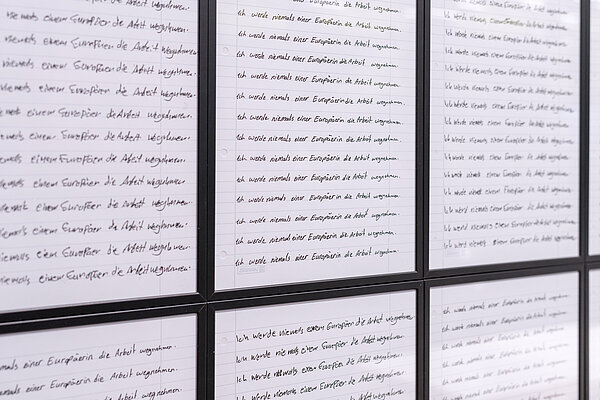 einem Europäer die Arbeit wegnehmen.
niemals einem Europäer die Arbeit wegnehmen.
niemals einem Europäer die Arbeit wegnehmen.
niemals einem Europäer die Arbeit wegnehmen.
niemals einem Europäer die Arbeit wegnehmen.
niemals einem Europäer die Arbeit wegnehmen.
niemals einem Europäer die Arbeit wegnehmen.
niemals einem Europäer die Arbeit wegnehmen.
einem Europäer die Arbeit wegnehmen.
niemals einem Europäer die Arbeit wegnehmen.
niemals einem Europäer die Arbeit wegnehmen.
niemals einem Europäer die Arbeit wegnehmen.
Ich werde niemals einer Europäerin die Arbeit wegnehmen.
Ich werde niemals einer Europäerin die Arbeit wegnehmen.
Ich werde niemals einer Europäerin die Arbeit wegnehmen.
Ich werde niemals einer Europäerin die Arbeit wegnehmen.
Ich werde niemals einer Europäerin die Arbeit wegnehmen.
Ich werde niemals einer Europäerin die Arbeit wegnehmen.
Ich werde niemals einer Europäerin die Arbeit wegnehmen.
Ich werde niemals einer Europäerin die Arbeit wegnehmen.
Ich werde niemals einer Europäerin die Arbeit wegnehmen.
Ich werde niemals einer Europäerin die Arbeit wegnehmen.
Ich werde niemals einer Europäerin die Arbeit wegnehmen.
Ich werde niemals einer Europäerin die Arbeit wegnehmen.
Ich werde niemals einer Europäerin die Arbeit wegnehmen.
Ich werde niemals einem Europäer die Arbeit wegnehmen.
Ich werde niemals einem Europäer die Arbeit wegnehmen.
Ich werde niemals einem Europäer die Arbeit wegnehmen.
Ich werde niemals einem Europäer die Arbeit wegnehmen.
Ich werde niemals einem Europäer die Arbeit wegnehmen.
Ich werde niemals einem Europäer die Arbeit wegnehmen.
Ich werde niemals einem Europäer die Arbeit wegnehmen.
Ich werde niemals einem Europäer die Arbeit wegnehmen.
Ich werde niemals einem Europäer die Arbeit wegnehmen.
Ich werde niemals einem Europäer die Arbeit wegnehmen.
Ich werde niemals einem Europäer die Arbeit wegnehmen.
Ich werde niemals einem Europäer die Arbeit wegnehmen.
Ich werde niemals einem Europäer die Arbeit wegnehmen.
niemals einer Europäerin die Arbeit wegnehmen.
niemals einer Europäerin die Arbeit wegnehmen.
Ich werde niemals einem Europäer die Arbeit wegnehmen.
Ich werde niemals einem Europäer die Arbeit wegnehmen.
Ich werde niemals einem Europäer die Arbeit wegnehmen.
Ich werde niemals einem Europäer die Arbeit
Ich werde niemals einem Europäer die Arbeit wegnehmen.
Ich werde niemals einem Europäer die Arbeit wegnehmen.
Ich werde niemals einem Europäer die Arbeit
Ich werde niemals einem Europäer die Arbeit
Ich werde niemals einem Europäer die